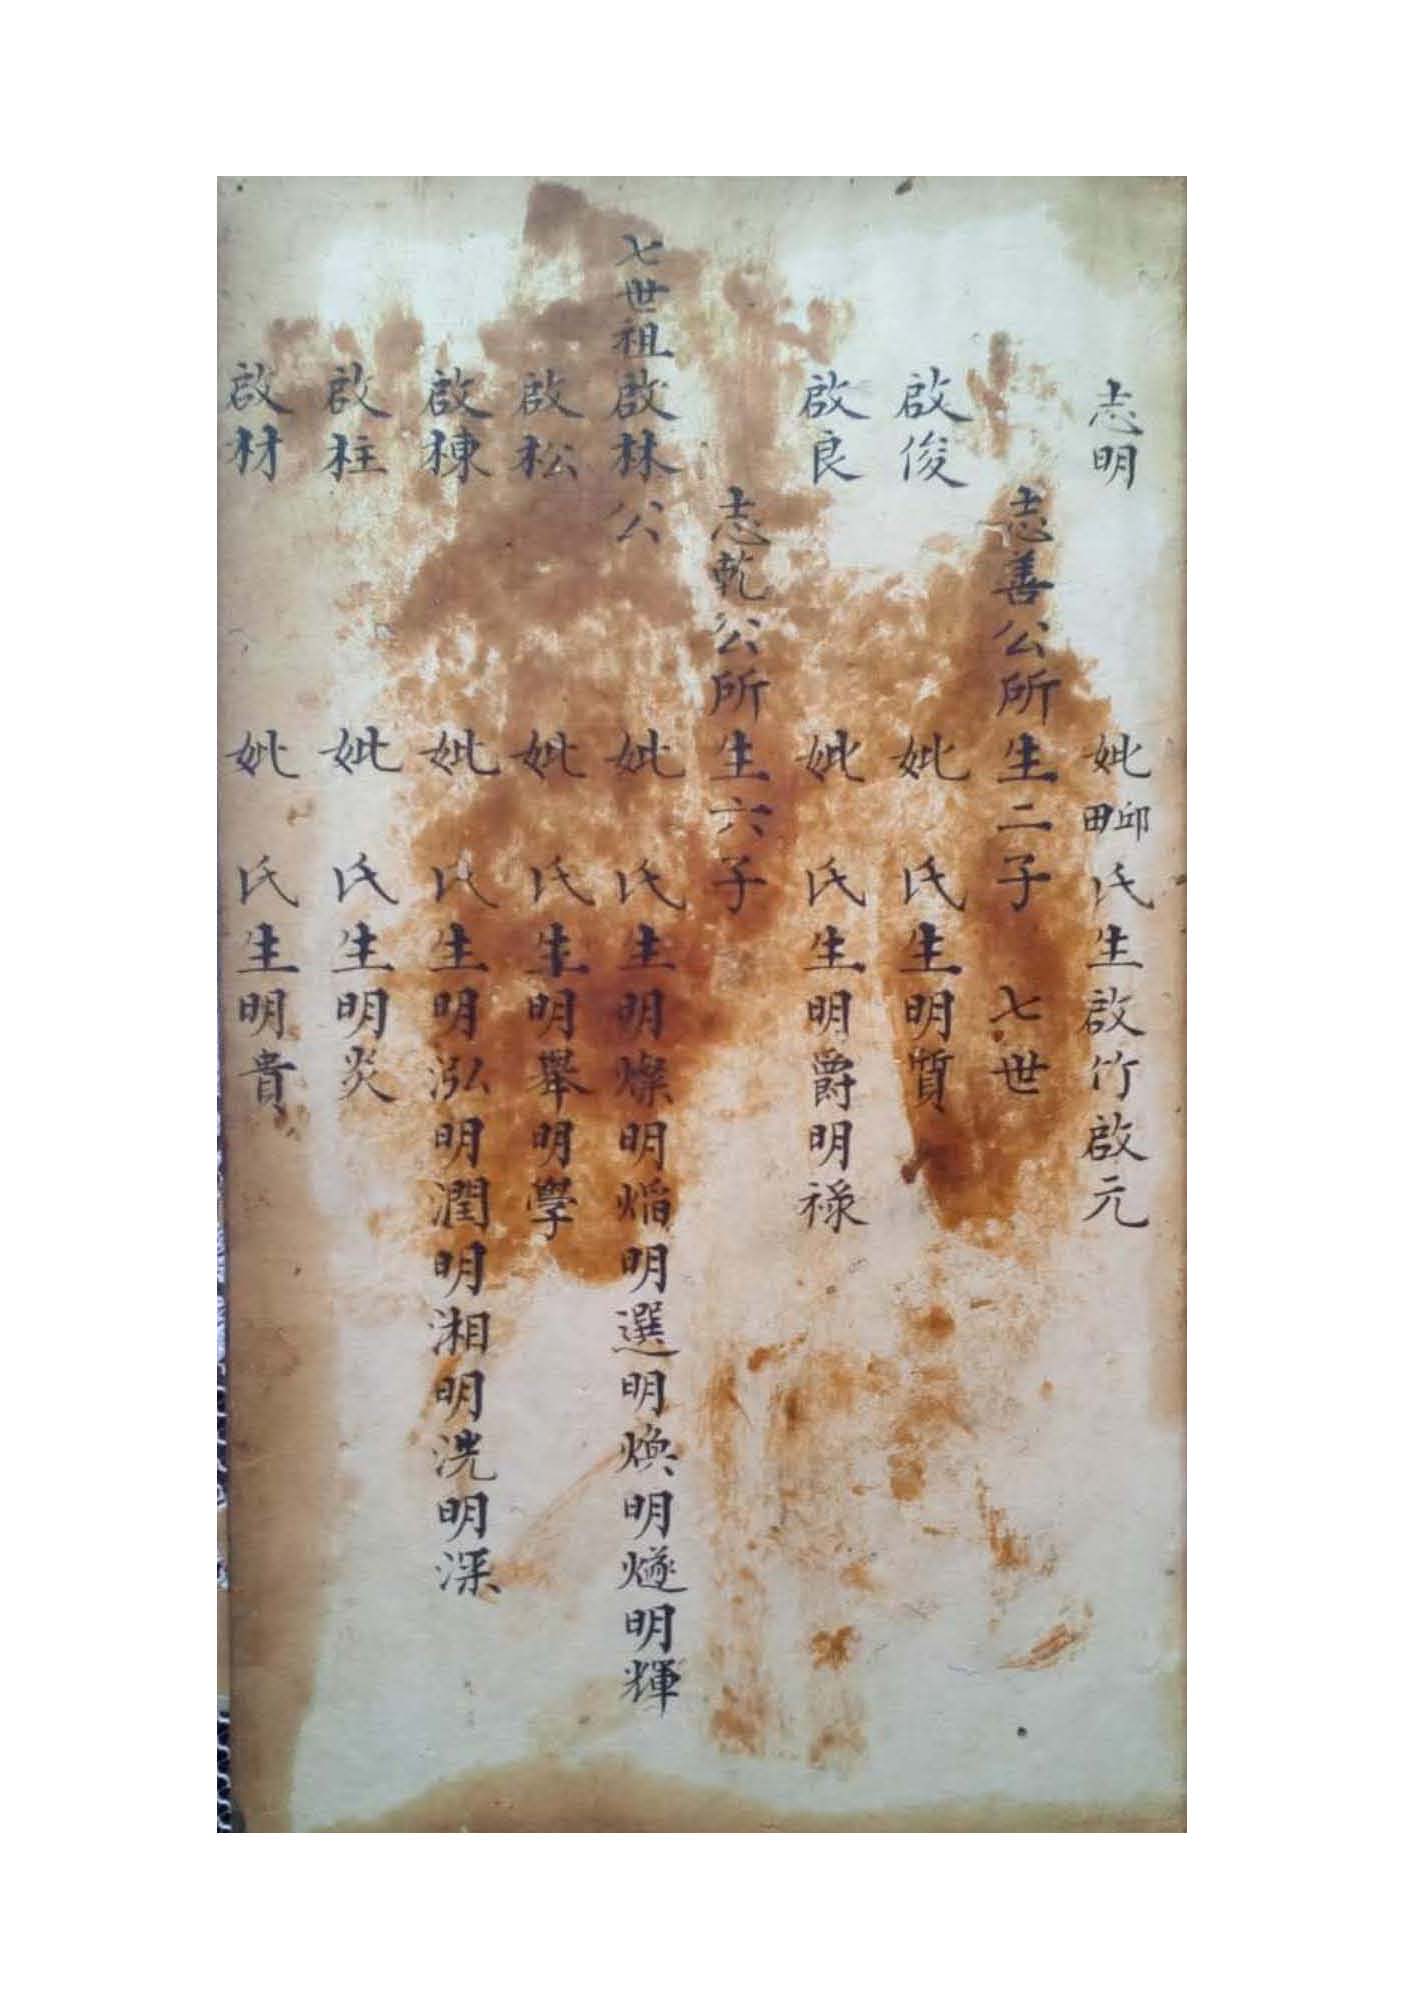 志明 妣邱田氏生啟竹啟元
志善公所生二子 七世
啟俊 妣 氏生明質
啟良 妣 氏生明爵明祿
志乾公所生六子
七世祖啟林公 妣 氏生明燦明焰明選明煥明燧明輝
啟松 妣 氏生明舉明學
啟棟 妣 氏生明泓明潤明湘明洸明深
啟柱 妣 氏生明炎
啟材 妣 氏生明貴